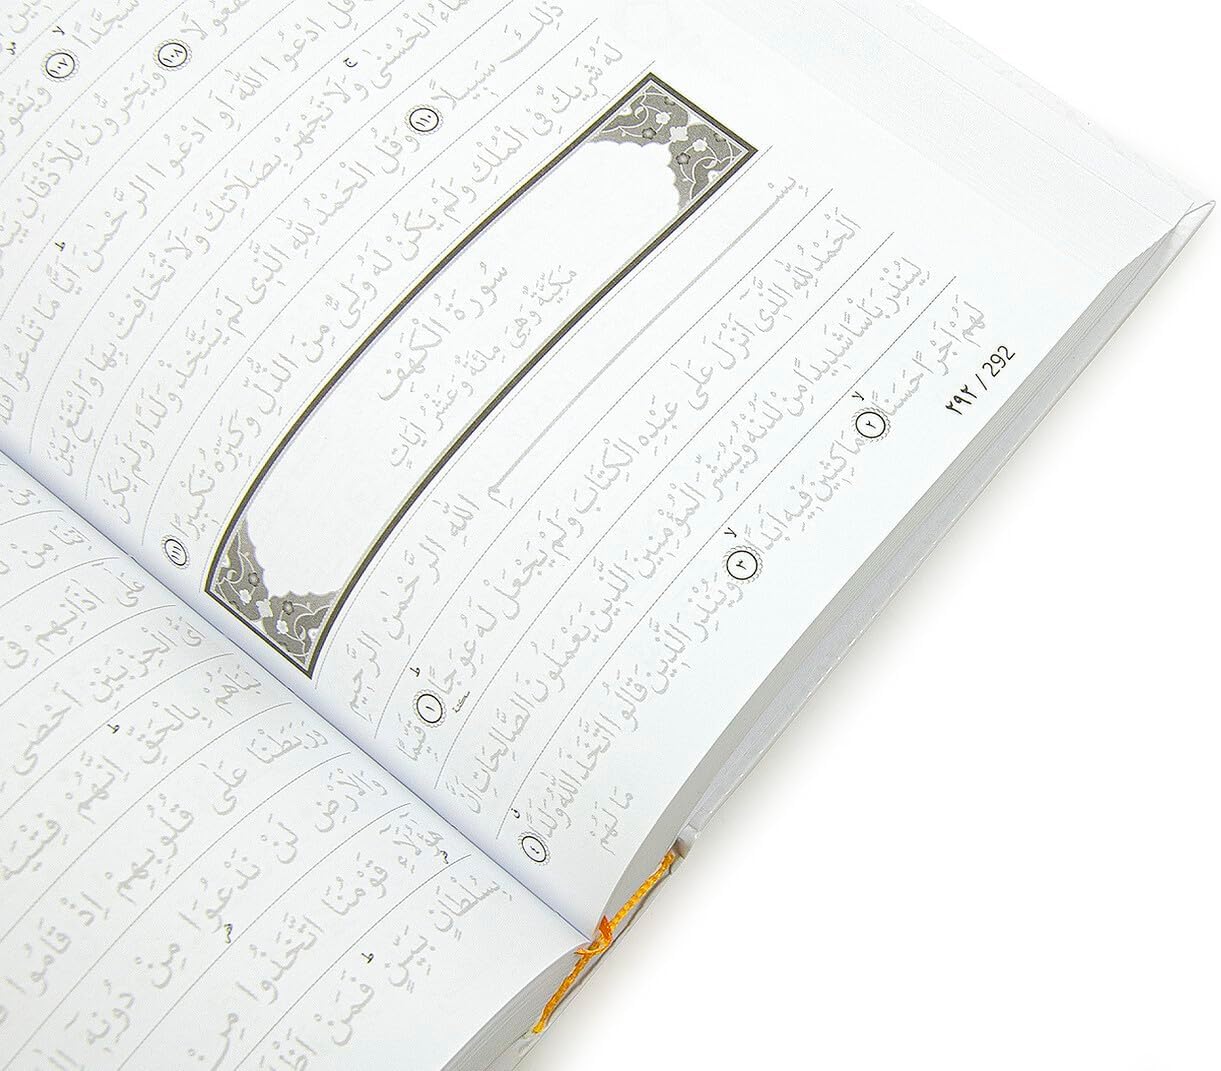 سُجَّدًا ﴿١٠٧﴾
١٠٨ وَيَخِرُّونَ لِلْاَذْقَانِ
قُلِ ادْعُوا اللّٰهَ اَوِ ادْعُوا الرَّحْمٰنَ اَيًّا مَا تَدْعُوا
الْحُسْنٰى وَلَا تَجْهَرْ بِصَلَاتِكَ وَلَا تُخَافِتْ بِهَا وَابْتَغِ بَيْنَ
ذٰلِكَ سَبِيلًا ١١٠ وَقُلِ الْحَمْدُ لِلّٰهِ الَّذِى لَمْ يَتَّخِذْ وَلَدًا وَلَمْ يَكُنْ
لَهُ شَرِيكٌ فِى الْمُلْكِ وَلَمْ يَكُنْ لَهُ وَلِىٌّ مِنَ الذُّلِّ وَكَبِّرْهُ تَكْبِيرًا ١١١
سُورَةُ الْكَهْفِ
مَكِّيَّةٌ وَهِىَ مِائَةٌ وَعَشْرُ اٰيَاتٍ
بِسْمِ اللّٰهِ الرَّحْمٰنِ الرَّحِيمِ
اَلْحَمْدُ لِلّٰهِ الَّذِٓى اَنْزَلَ عَلٰى عَبْدِهِ الْكِتَابَ وَلَمْ يَجْعَلْ لَهُ عِوَجًا ١ قَيِّمًا
لِيُنْذِرَ بَاْسًا شَدِيدًا مِنْ لَدُنْهُ وَيُبَشِّرَ الْمُؤْمِنِينَ الَّذِينَ يَعْمَلُونَ الصَّالِحَاتِ اَنَّ
لَهُمْ اَجْرًا حَسَنًا ٢ مَاكِثِينَ فِيهِ اَبَدًا ٣ وَيُنْذِرَ الَّذِينَ قَالُوا اتَّخَذَ اللّٰهُ وَلَدًا ٤ مَا لَهُمْ
٢٩٢ / 292
عَلٰٓى اٰذَانِهِمْ فِى
اَىُّ الْحِزْبَيْنِ اَحْصٰى
نَبَاَهُمْ بِالْحَقِّ اِنَّهُمْ فِتْيَةٌ
وَرَبَطْنَا عَلٰى قُلُوبِهِمْ اِذْ قَامُوا
وَالْاَرْضِ لَنْ نَدْعُوَا مِنْ دُونِهِٓ
هٰٓؤُلَٓاءِ قَوْمُنَا اتَّخَذُوا مِنْ
بِسُلْطَانٍ بَيِّنٍ فَمَنْ